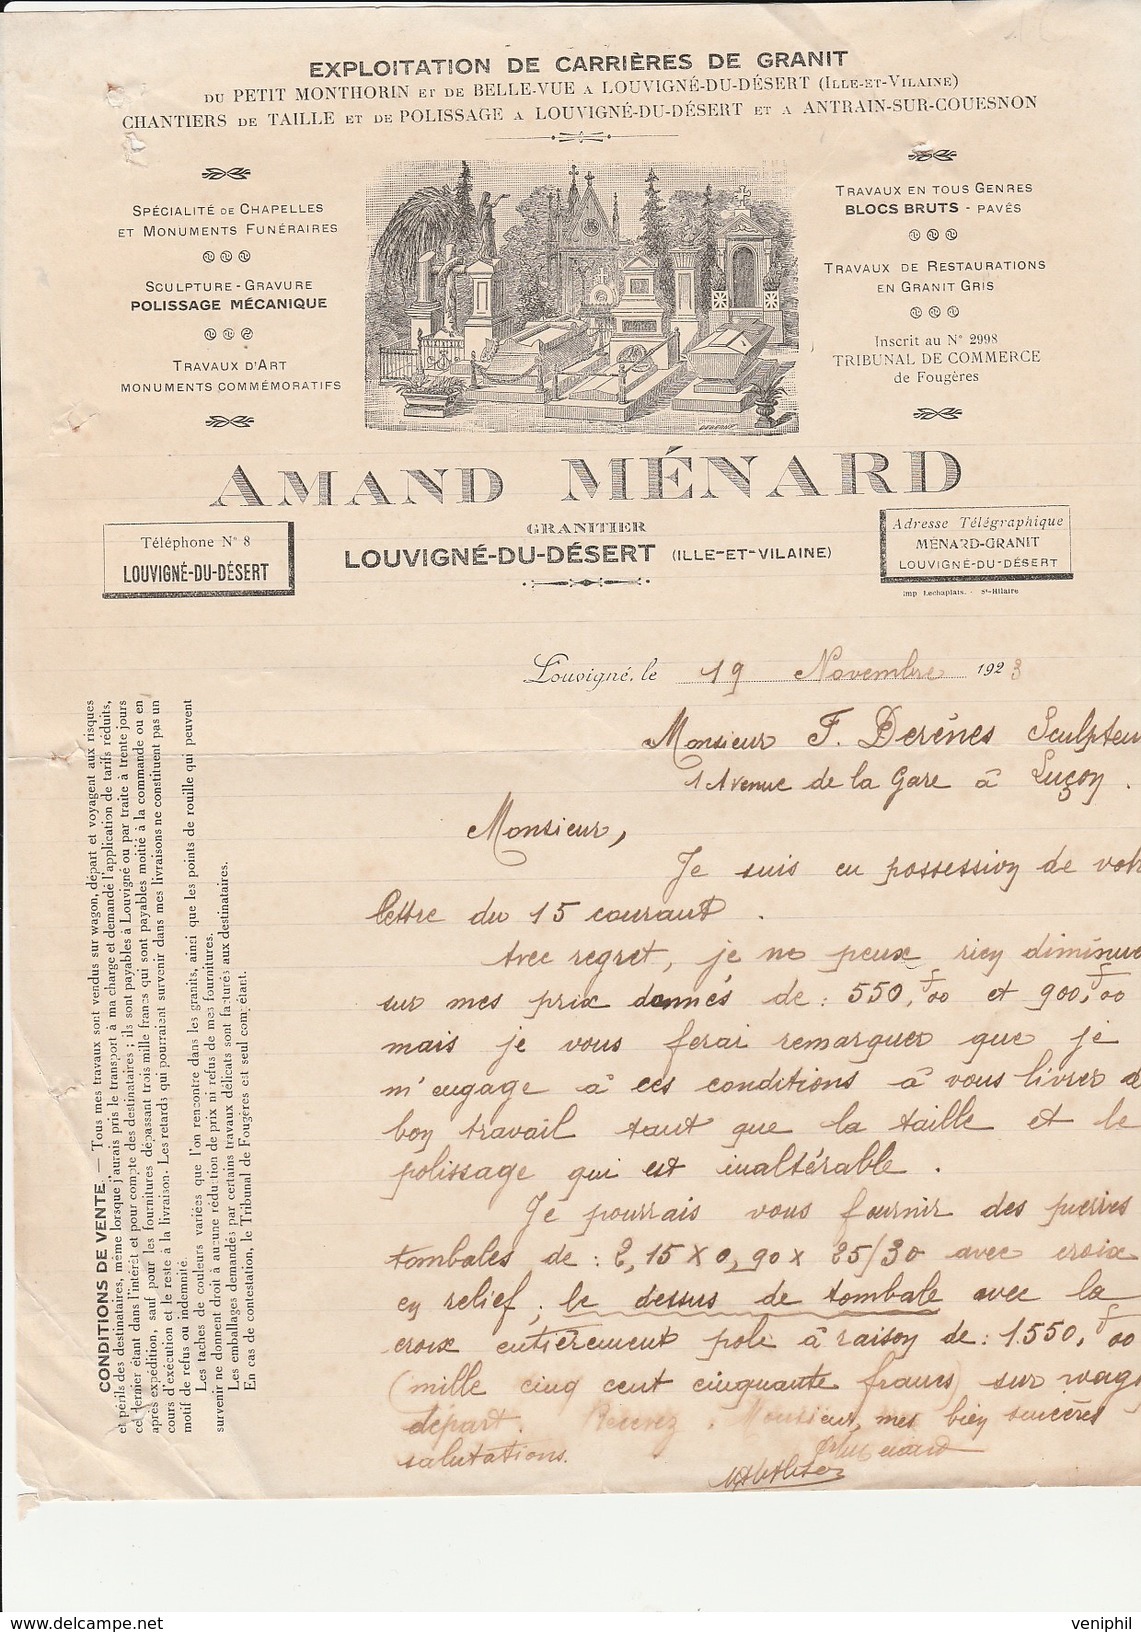 EXPLOITATION DE CARRIÈRES DE GRANIT
DU PETIT MONTHORIN ET DE BELLE-VUE A LOUVIGNÉ-DU-DÉSERT (ILLE-ET-VILAINE)
CHANTIERS DE TAILLE ET DE POLISSAGE A LOUVIGNÉ-DU-DÉSERT ET A ANTRAIN-SUR-COUESNON
SPÉCIALITÉ DE CHAPELLES
ET MONUMENTS FUNÉRAIRES
SCULPTURE - GRAVURE
POLISSAGE MÉCANIQUE
TRAVAUX D'ART
MONUMENTS COMMÉMORATIFS
TRAVAUX EN TOUS GENRES
BLOCS BRUTS - PAVÉS
TRAVAUX DE RESTAURATIONS
EN GRANIT GRIS
Inscrit au N° 2998
TRIBUNAL DE COMMERCE
de Fougères
AMAND MÉNARD
GRANITIER
LOUVIGNÉ-DU-DÉSERT (ILLE-ET-VILAINE)
Téléphone N° 8
LOUVIGNÉ-DU-DÉSERT
Adresse Télégraphique
MÉNARD-GRANIT
LOUVIGNÉ-DU-DÉSERT
Imp Lechaplais. - St-Hilaire
Louvigné, le 19 Novembre 1923
Monsieur F. Derènes Sculpteu
1 Avenue de la Gare à Luçon.
Monsieur,
Je suis en possession de vot
lettre du 15 courant.
Avec regret, je ne peux rien diminue
sur mes prix donnés de : 550,f00 et 900,f00
mais je vous ferai remarquer que je
m'engage à ces conditions à vous livrer d
bon travail tant que la taille et le
polissage qui est inaltérable.
Je pourrais vous fournir des pierres
tombales de : 2,15 x 0,90 x 25/30 avec croix
en relief, le dessus de tombale avec la
croix entièrement poli à raison de : 1.550,f00
(mille cinq cent cinquante francs) sur wag
départ. Recevez, Monsieur, mes bien sincères
salutations.
CONDITIONS DE VENTE. — Tous mes travaux sont vendus sur wagon, départ et voyagent aux risques
et périls des destinataires, même lorsque j'aurais pris le transport à ma charge et demandé l'application de tarifs réduits,
ce dernier étant dans l'intérêt et pour compte des destinataires ; ils sont payables à Louvigné ou par traite à trente jours
après expédition, sauf pour les fournitures dépassant trois mille francs qui sont payables moitié à la commande ou en
cours d'exécution et le reste à la livraison. Les retards qui pourraient survenir dans mes livraisons ne constituent pas un
motif de refus ou indemnité.
Les taches de couleurs variées que l'on rencontre dans les granits, ainsi que les points de rouille qui peuvent
survenir ne donnent droit à aucune réduction de prix ni refus de mes fournitures.
Les emballages demandés par certains travaux délicats sont facturés aux destinataires.
En cas de contestation, le Tribunal de Fougères est seul compétent.
veniphil